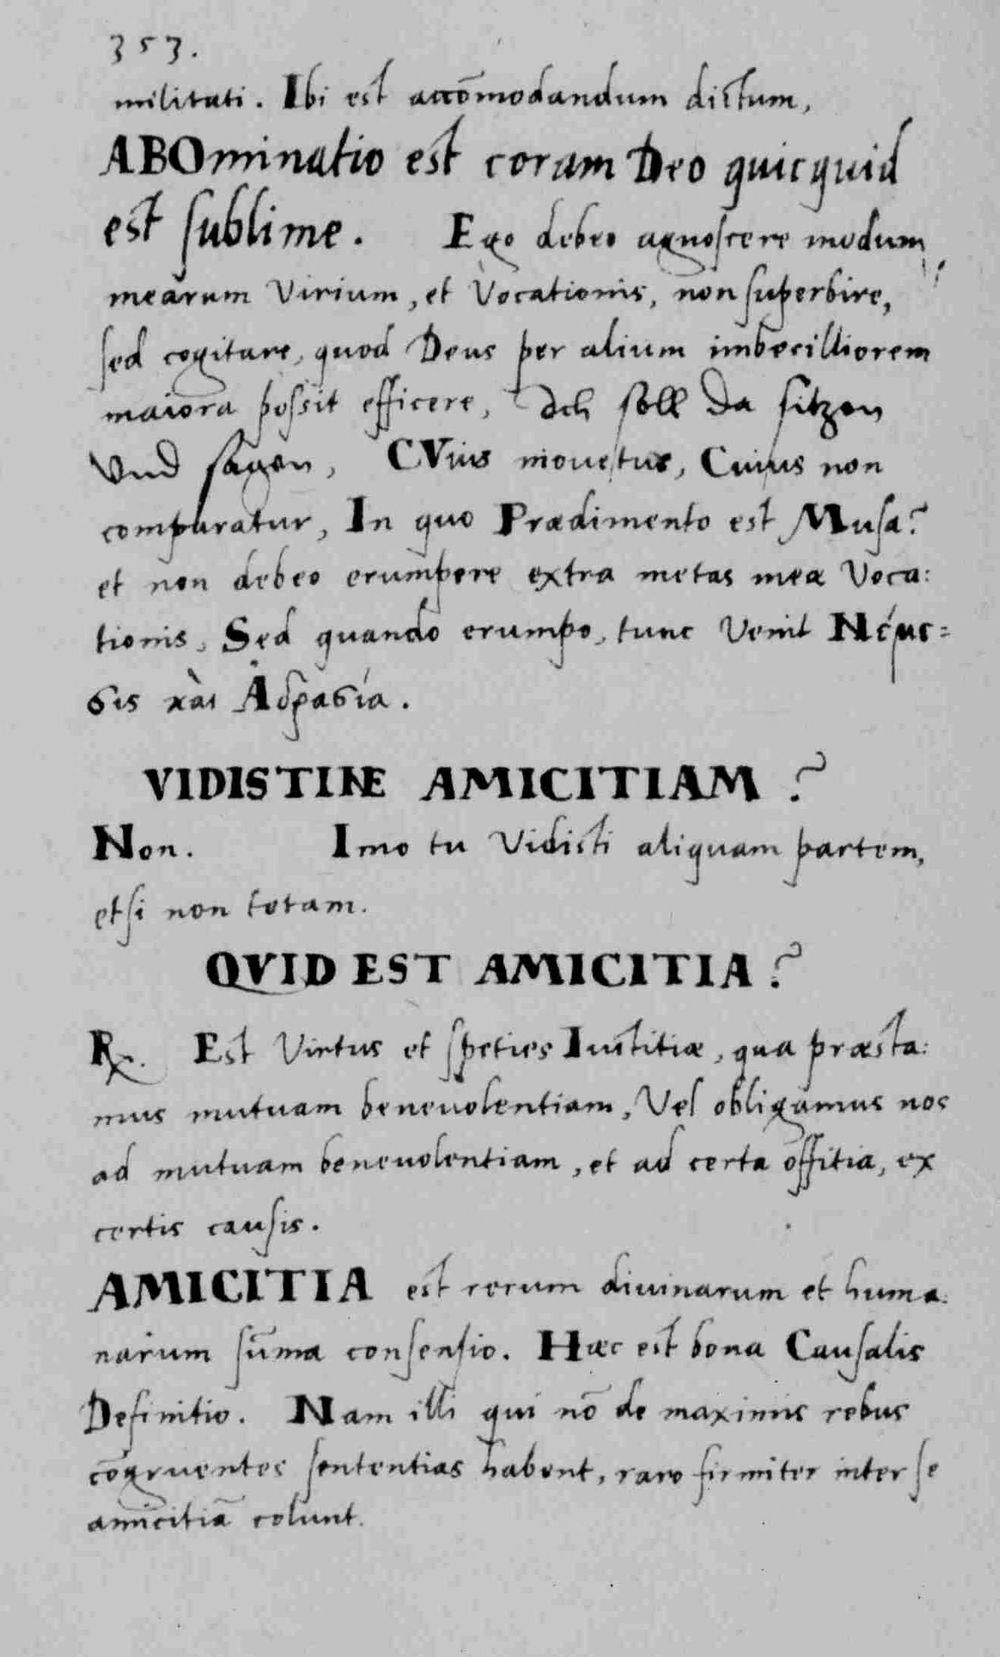 353.
militati. Ibi est accōmodandum dictum,
ABOminatio est coram Deo quicquid
est sublime. Ego debeo agnoscere modum
mearum Virium, et Vocationis, non superbire,
sed cogitare, quod Deus per alium imbecilliorem
maiora possit efficere, Ich soll da sitzen
Vnd sagen, CVius mouetur, Cuius non
comparatur, In quo Prædimento est Musa?
et non debeo erumpere extra metas meæ Voca:
tionis, Sed quando erumpo, tunc Venit Νέμε=
σις καὶ Ἀδρασία.
VIDISTINE AMICITIAM?
Non. Imo tu Vidisti aliquam partem,
etsi non totam.
QVID EST AMICITIA?
R. Est Virtus et speties Iustitiæ, qua præsta:
mus mutuam beneuolentiam, Vel obligamus nos
ad mutuam beneuolentiam, et ad certa offitia, ex
certis causis.
AMICITIA est rerum diuinarum et huma:
narum sūma consensio. Hæc est bona Causalis
Definitio. Nam illi qui nō de maximis rebus
cōgruentes sententias habent, raro firmiter inter se
amicitiā colunt.